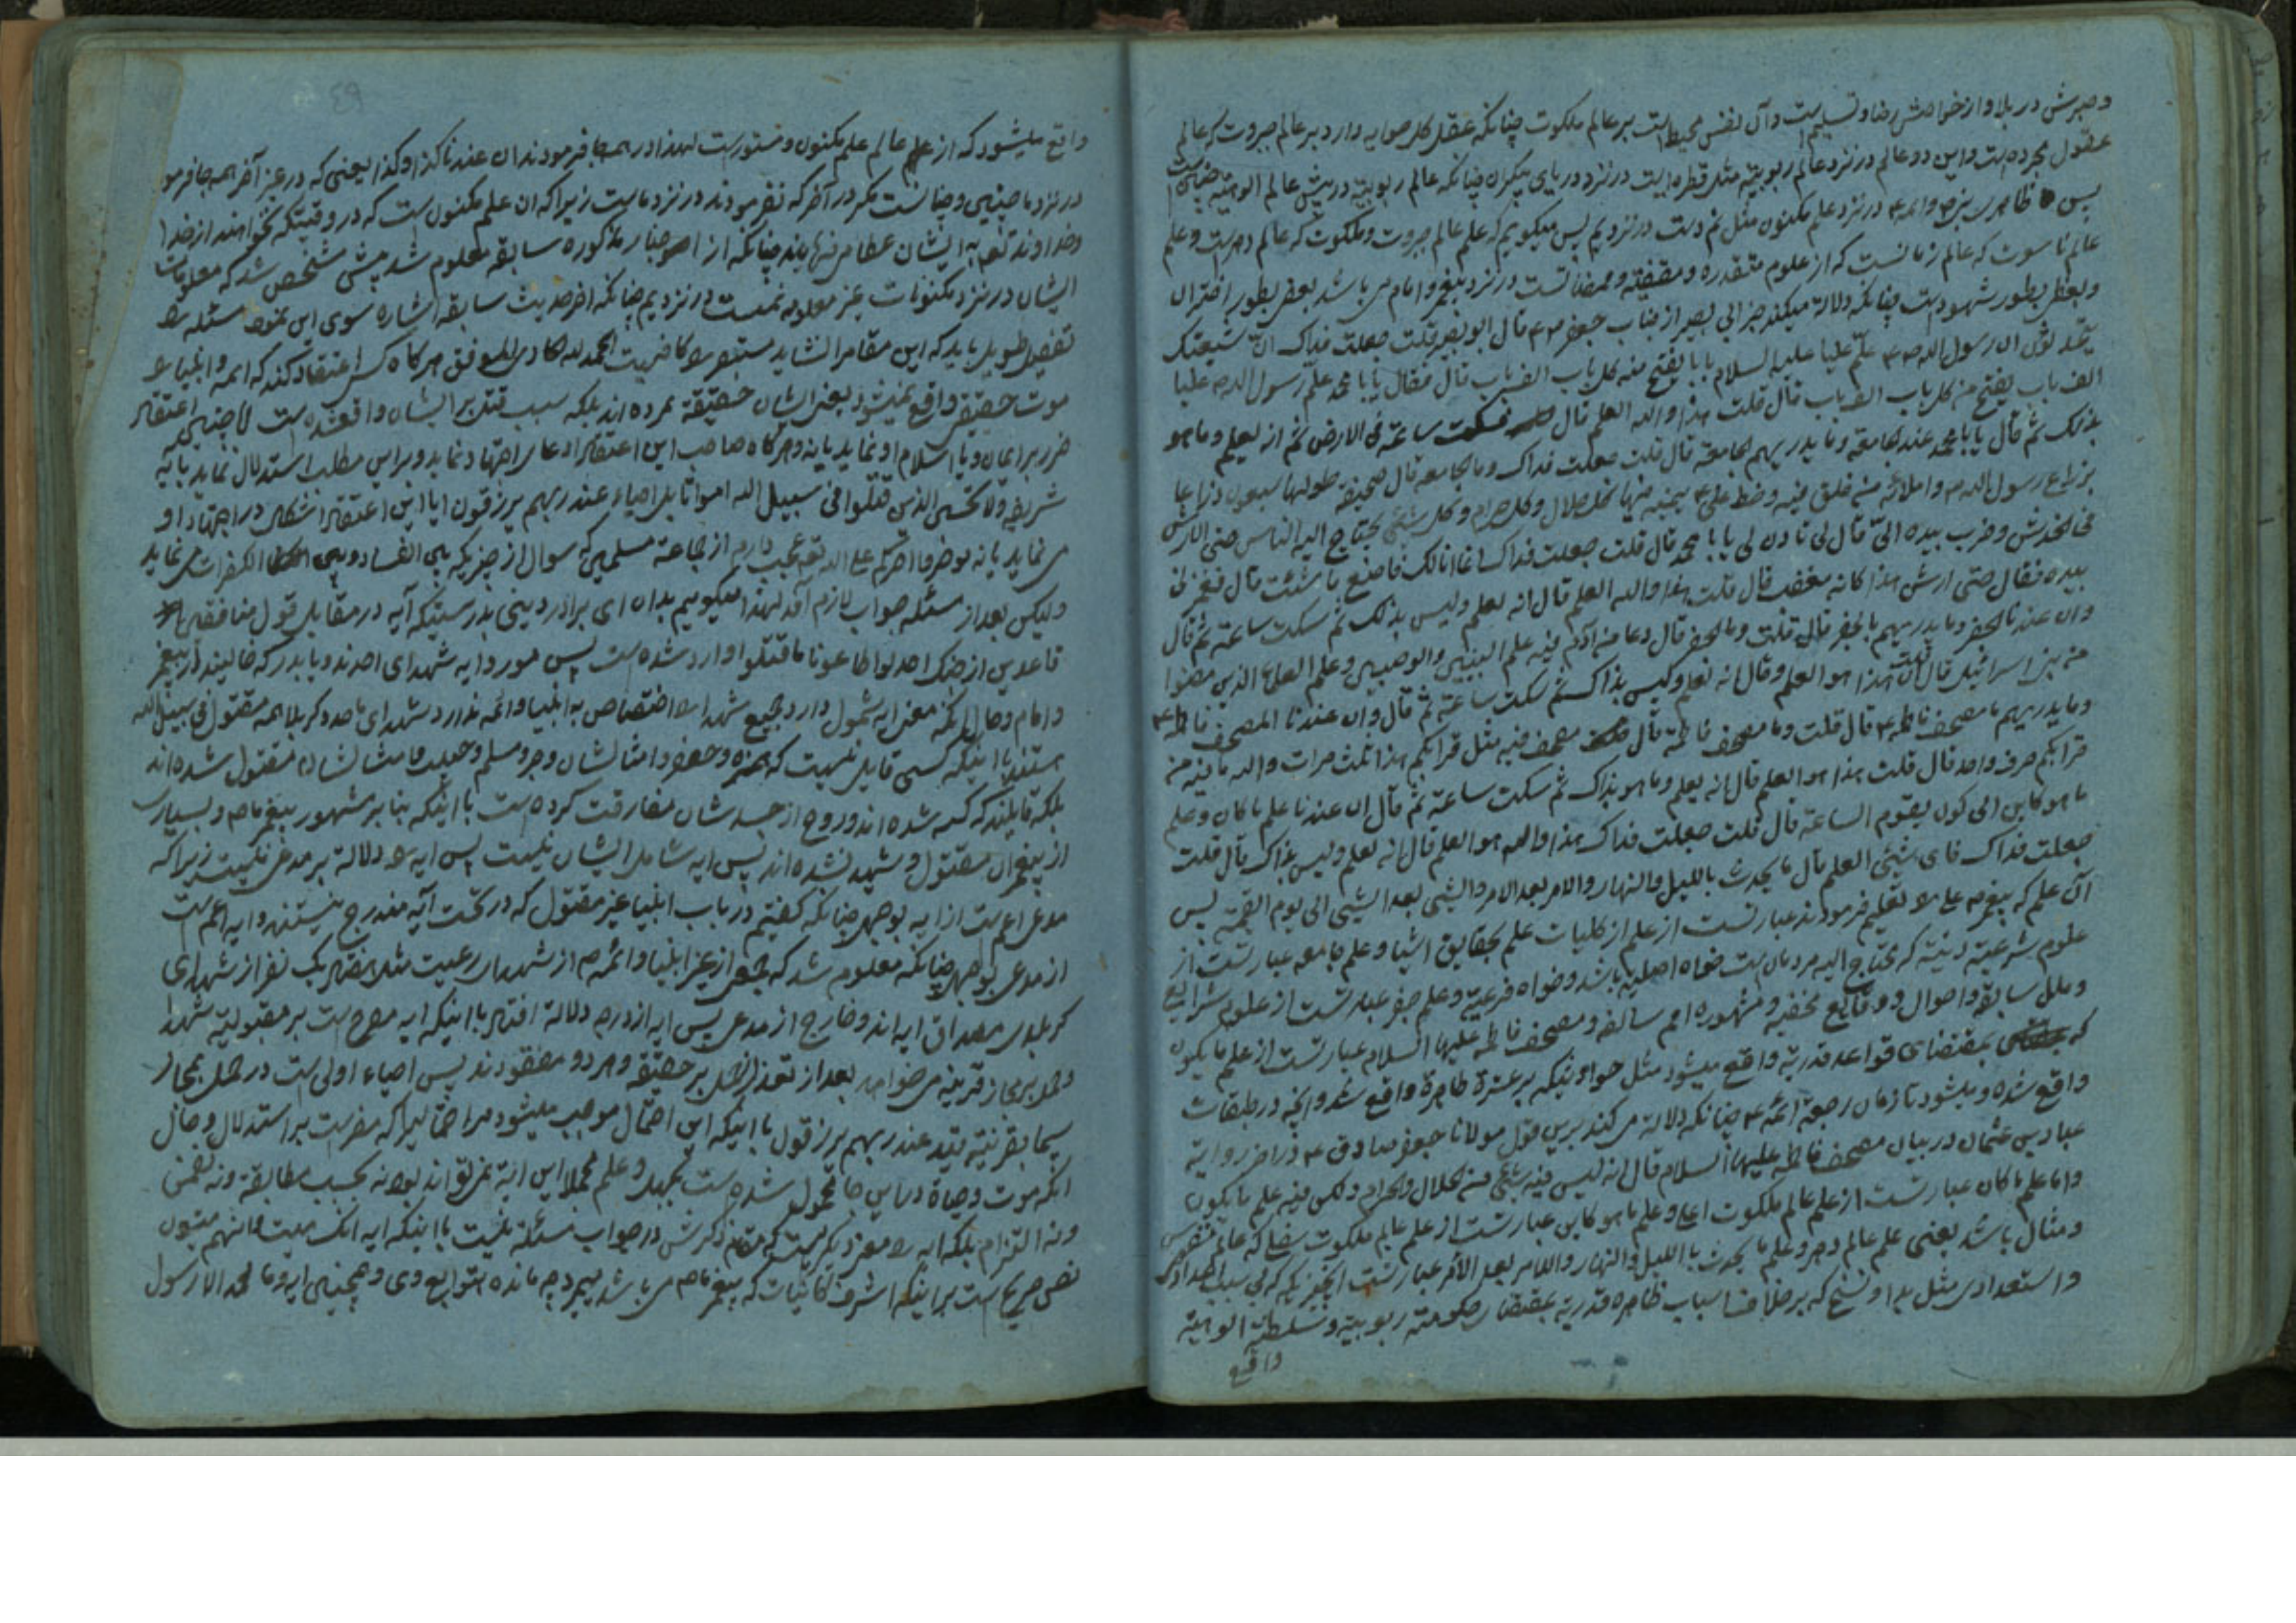 و صبرش در بلا و از خواهش رضا و تسلیم است و آن نفس محیط است بر عالم ملکوت چنانکه عقل کل صوابه دارد بر عالم جبروت که عالم
عقول مجرده است و این دو عالم در نزد عالم ربوبیة مثل قطره ایست در نزد دریای بیکران چنانکه عالم ربوبیة در پیش عالم الوهیة
پس ظاهر در نزد علم مکنون مثل نم است در نزد یم پس میگویم که علم عالم جبروت و ملکوت که عالم دهر است و علم
عالم ناسوت که عالم زمانست که از علوم متقدره و مقضیّه و ممضاتست در نزد پیغمبر و امام می باشد بعض بطور اقتران
و بعض بطور شهود است چنانکه دلالة میکند خبر ابی بصیر از جناب جعفر ع قال ابو بصیر قلت جعلت فداک ان شیعتک
یتحدثون ان رسول الله ص علّم علیا علیه السلام بابا یفتح منه کل باب الف باب قال فقال یا با محمد علّم رسول الله ص علیا
الف باب یفتح من کل باب الف باب قال قلت هذا والله العلم قال فسکت ساعة فی الارض ثم انه لعلم و ما هو
بذلک ثم قال یا با محمد عندنا جامعة و ما یدریهم ما الجامعة قال قلت جعلت فداک و ما الجامعه قال صحیفة طولها سبعون ذراعا
بذراع رسول الله ص و املائه من فلق فیه و خط علی ع بیمینه فیها کل حلال و کل حرام و کل شیٔ یحتاج الیه الناس حتی الارش
فی الخدش و ضرب بیده الیّ قال لی تاذن لی یا با محمد قال قلت جعلت فداک انما انا لک فاصنع ما شئت قال فغمزنی
بیده فقال حتی ارش هذا کانه مغضب قال قلت هذا والله العلم قال انه لعلم و لیس بذلک ثم سکت ساعة ثم قال
و ان عندنا الجفر و ما یدریهم ما الجفر قال قلت و ما الجفر قال وعا من آدم فیه علم النبیین و الوصیین و علم العلماء الذین مضوا
من بنی اسرائیل قال قلت هذا هو العلم و قال انه لعلم و لیس بذاک ثم سکت ساعة ثم قال و ان عندنا المصحف فاطمه ع
و ما یدریهم ما مصحف فاطمه ع قال قلت و ما مصحف فاطمة قال مصحف فیه مثل قرآنکم هذا ثلث مرات والله ما فیه من
قرآنکم حرف واحد قال قلت هذا هو العلم قال انه لعلم و ما هو بذاک ثم سکت ساعة ثم قال ان عندنا علم ما کان و علم
ما هو کاین الی کون یقوم الساعة قال قلت جعلت فداک هذا والله هو العلم قال انه لعلم و لیس بذاک قال قلت
جعلت فداک فای شیئی العلم قال ما یحدث باللیل و النهار و الامر بعد الامر و الشیی بعد الشیی الی یوم القیمة پس
آن علم که پیغمبر ص علی را تعلیم فرمودند عبارتست از علم از کلیات علم بحقایق اشیا و علم جامعه عبارتست از
علوم شرعیة دینیّه که محتاج الیه مردمان است خواه اصلیة باشد و خواه فرعیة و علم جفر عبارتست از علوم شرایع
و ملل سابقه و احوال و وقایع مخفیه و مشهوره امم سالفه و مصحف فاطمه علیها السلام عبارتست از علم ما یکون
که بمقتضای قواعد قدریّه واقع میشود مثل حوادثیکه بر عترة طاهرة واقع شد و آنچه در طبقات
واقع شده و میشود تا زمان رجعة ائمه ع چنانکه دلالة می کند بر این قول مولانا جعفر صادق ع در آخر روایة
عباد بن عثمان در بیان مصحف فاطمه علیها السلام قال انه لیس فیه شیئی من الحلال و الحرام و لکن فیه علم ما یکون
و اما علم ما کان عبارتست از علم عالم ملکوت اعلی و علم ما هو کاین عبارتست از علم عالم ملکوت سفلی که عالم نفوس
و مثال باشد یعنی علم عالم دهر و علم ما یحدث باللیل و النهار و الامر بعد الامر عبارتست از چیزیکه که بی سبب اعدادی
و استعدادی مثل بدا و نسخ که بر خلاف اسباب ظاهره قدریّه بمقتضای حکومته ربوبیّة و سلطنة الوهیّة
واقع
واقع میشود که از علم عالم علم مکنون و مستور است لهذا در همه جا فرمودند ان عندنا کذا و کذا یعنی که در غیر آخر همه جا فرمو
در نزد ما چنین و چنانست مگر در آخر که نفرمودند در نزد ماست زیرا که ان علم مکنون است که در وقتیکه بخواهند از خدا
و خداوند تعم به ایشان عطا می نمایند چنانکه از اخبار مذکوره سابقه معلوم شد مشخص شد که معلومات
ایشان در نزد مکنونات غیر معلومه نمیست در نزد یم چنانکه در حدیث سابقه اشاره سوی این نمود مسئله را
تفصیل طویل باید که این مقام را نشاید مستبصر را کافیست الحمد لله الهادی الموفق هر کاه کسی اعتقاد کند که ائمه و انبیا را
موت حقیقی واقع نمیشود یعنی ایشان حقیقة نمرده اند بلکه سبب قتل بر ایشان واقع شده است آیا چنین اعتقاد
ضرر بر ایمان و یا اسلام او نماید یا نه و هر کاه صاحب این اعتقاد ادعای اجتهاد نماید و بر این مطلب استدلال نماید بآیه
شریفه و لا تحسبن الذین قتلوا فی سبیل الله امواتا بل احیاء عند ربهم یرزقون آیا این اعتقاد اشکالی در اجتهاد او
می نماید یا نه توضروا اجرکم علی الله تعم عجب دارم از جماعة مسلمین که سوال از چیزیکه بین الفساد و بین الکفر است می نماید
و لیکن بعد از مسئله جواب لازم آمد لهذا میگوییم بدان ای برادر دینی بدرستیکه آیه در مقابل قول منافقین
قاعدین از جنک احد لو اطاعونا ما قتلوا وارد شده است پس مورد ایه شهدای احدند و یا بدر که خالیند از پیغمبر
و امام و حال آنکه معنی ایه شمول دارد جمیع شهدا را اختصاص به انبیا و ائمه ندارد شهدای احد و کربلا همه مقتول فی سبیل الله
هستند با اینکه کسی قایل نیست که حمزه و جعفر و امثالشان و حر و مسلم و حبیب و امثالشان مقتول نشده اند
بلکه قایلند که کشته شده اند و روح از جسدشان مفارقت کرده است با اینکه بنا بر مشهور پیغمبر ما ص و بسیاری
از پیغمبران مقتول و شهید نشده اند پس ایه شامل ایشان نیست پس ایه را دلالة بر مدعی نیست زیرا که
مدعی اعم است از ایه بوجهی چنانکه گفتیم در باب انبیا غیر مقتول که در تحت آیه مندرج نیستند و ایه اعم است
از مدعی بوجهی چنانکه معلوم شد که جمعی از غیر انبیا و ائمه ص از شهدای رعیت مثل هفتاد یک نفر از شهدای
کربلای مصداق ایه اند و خارج از مدعی پس ایه از درجه دلالة افتاد با اینکه ایه صریح است بر مقتولیّة شهدا
و حمل بر مجاز قرینه می خواهد بعد از تعذر حمل بر حقیقة و هر دو مفقودند پس احیاء اولی است در حمل بمجاز
سیما بقرینه قید عند ربهم یرزقون با اینکه این احتمال موجب میشود مر اجمالیرا که مضر است بر استدلال و حال
آنکه موت و حیاة در این جا محمول شده است بجهل و علم مجملا این ایة نمی تواند بود نه بحسب مطابقة و نه تضمن
و نه التزام بلکه ایه را معنی دیگر است که مقام ذکرش در جواب مسئله نیست با اینکه ایه انک میت و انهم میتون
نص صریح است بر اینکه اشرف کائنات که پیغمبر ما ص می باشد بمیرد چه مانده بتوابع وی و همچنین ایه و ما محمد الا رسول